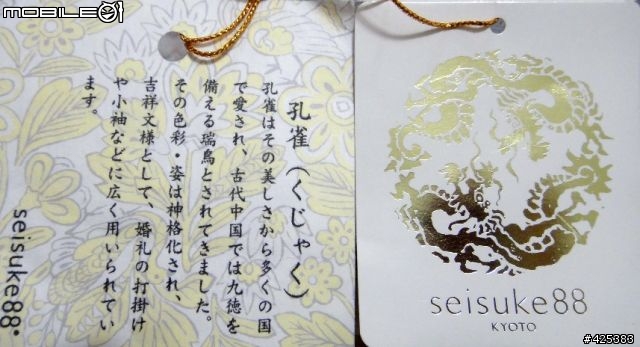 MOBILE01
孔雀（くじゃく）
孔雀はその美しさから多くの国
で愛され、古代中国では九徳を
備える瑞鳥とされてきました。
その色彩・姿は神格化され、
吉祥文様として、婚礼の打掛け
や小袖などに広く用いられてい
ます。
seisuke88®
seisuke88
KYOTO
#425383